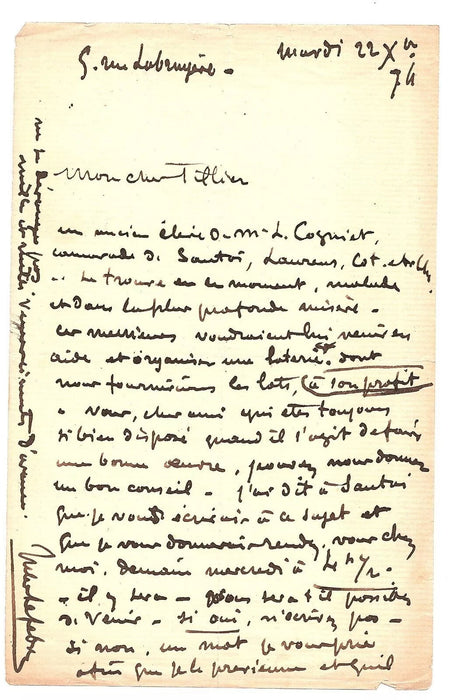 5. rue Labruyère -
mardi 22 Xbre
74
Mon cher Tillier
un ancien élève de Mr L. Cogniet,
camarade de Santai, Laurens, Cot. etc
- se trouve en ce moment, malade
et dans la plus profonde misère -
ces messieurs voudraient lui venir en
aide et organiser une loterie, dont
nous fournirions les lots, (à son profit
- vous, cher ami qui êtes toujours
si bien disposé quand il s'agit de faire
une bonne œuvre, pouvez nous donner
un bon conseil - j'ai dit à Santai
que je vous écrirais à ce sujet et
que je vous donnerais rendez vous chez
moi, demain mercredi à 4 h 1/2 -
- il y sera - vous sera t il possible
de venir - si oui, n'écrivez pas -
si non, un mot je vous prie
afin que je le prévienne et qu'il
ne se dérange pas
mille amitiés remerciements d'avance.
Jules Lefebvre